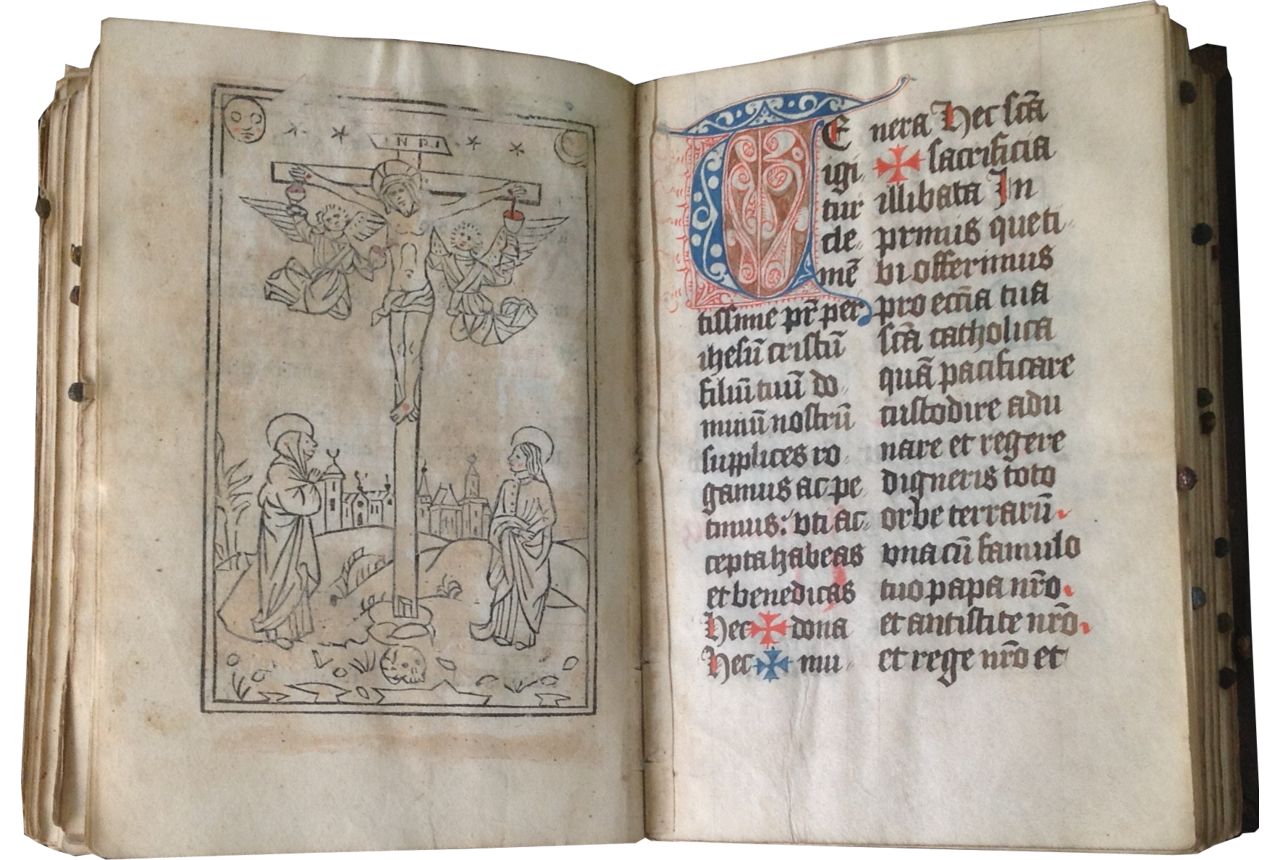 INRI
TE
igi
tur
cle
mē
tissime pr̄ per
ihesū cristū
filiū tuū do
minū nostrū
supplices ro
gamus ac pe
timus: vti ac
cepta habeas
et benedicas
Hec ✠ dona
Hec ✠ mu
nera Hec sc̄a
✠ sacrificia
illibata In
prımus que ti
bi offerimus
pro eccīa tua
sc̄a catholica
quā pacificare
custodire adu
nare et regere
digneris toto
orbe terrarū
vna cū famulo
tuo papa nr̄o
et antistite nr̄o
et rege nr̄o et